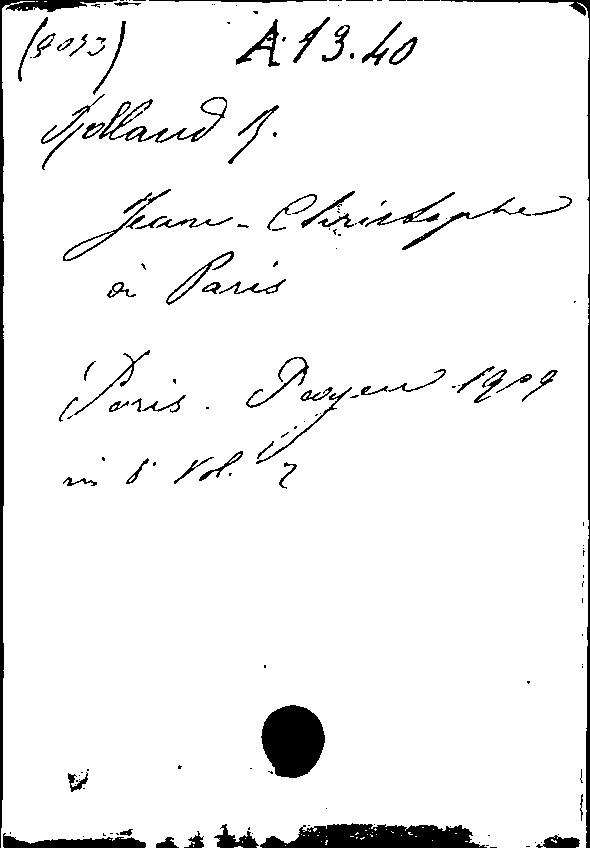 (9053) A.13.40
Rolland R.
Jean-Christophe
à Paris
Paris. 1909
in 8° Vol. 2